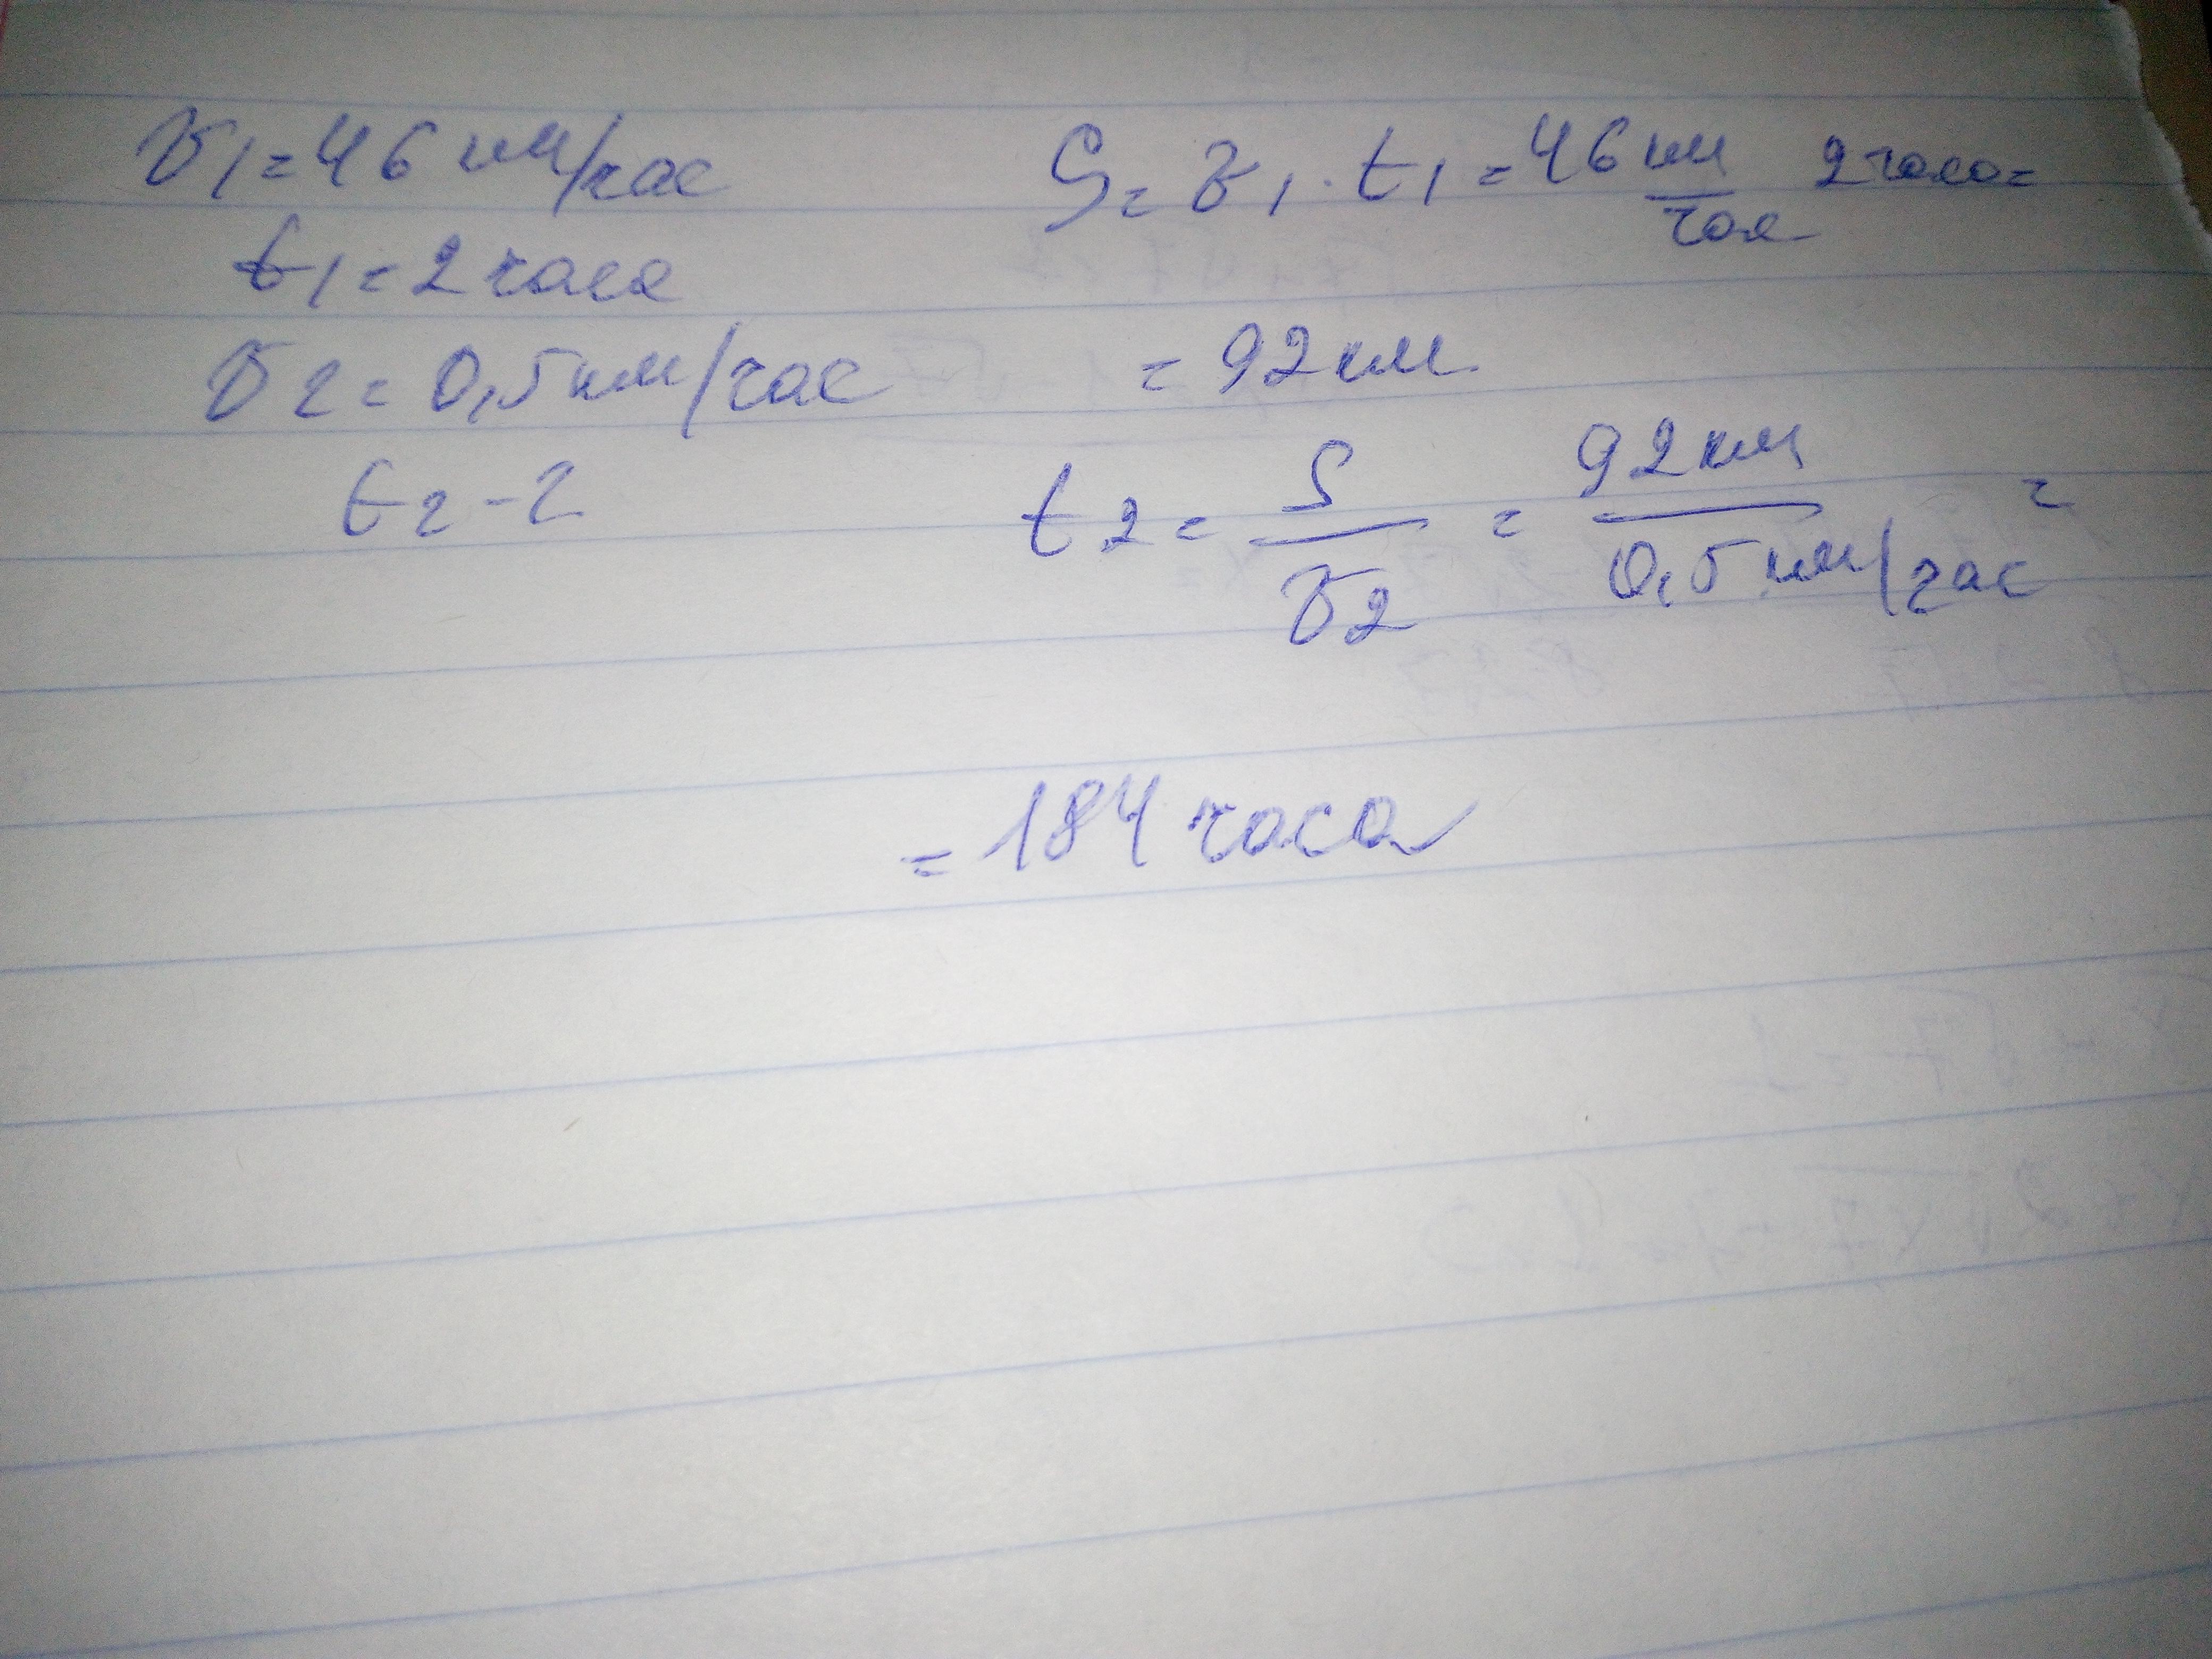 υ1 = 46 км/час
t1 = 2 часа
υ2 = 0,5 км/час
t2 - ?
S = υ1 · t1 = 46 км/час 2 часа =
= 92 км
t2 = S/υ2 = 92 км/0,5 км/час =
= 184 часа